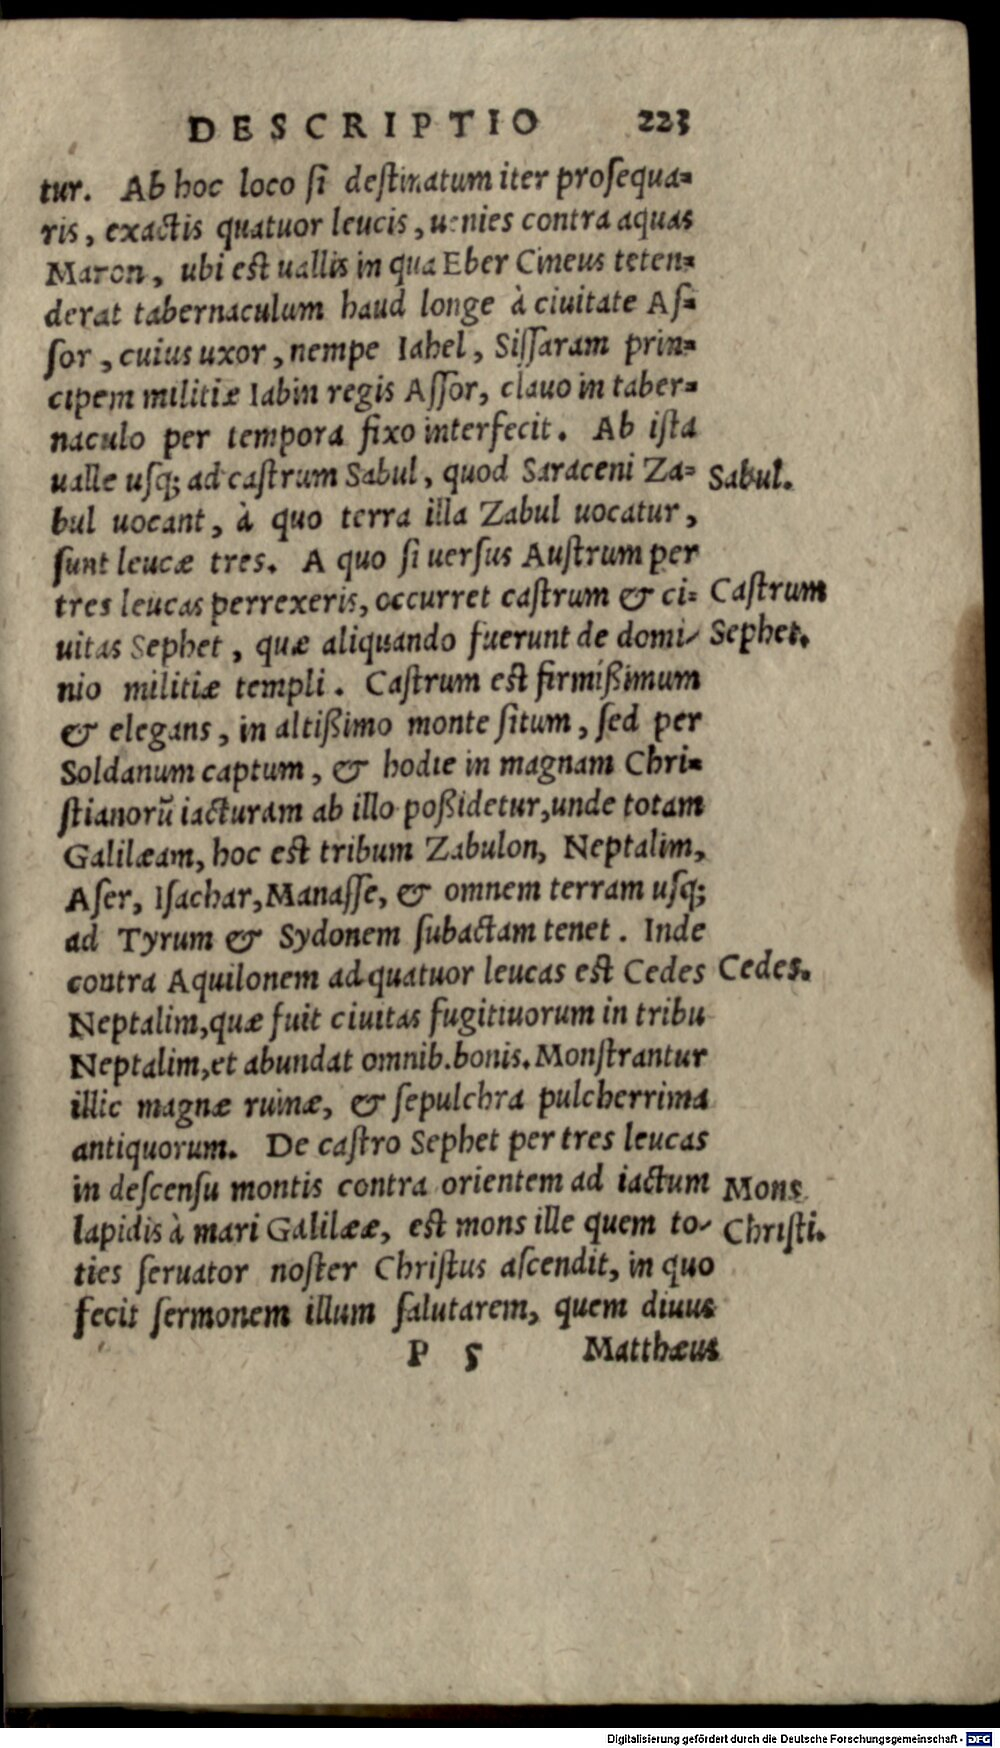 DESCRIPTIO 223
tur. Ab hoc loco ſi deſtinatum iter proſequa-
ris, exactis quatuor leucis, uenies contra aquas
Maron, ubi eſt uallis in qua Eber Cineus teten-
derat tabernaculum haud longe à ciuitate Aſ-
ſor, cuius uxor, nempe Iahel, Siſſaram prin-
cipem militiæ Iabin regis Aſſor, clauo in taber-
naculo per tempora fixo interfecit. Ab iſta
ualle uſq; ad caſtrum Sabul, quod Saraceni Za- Sabul.
bul uocant, à quo terra illa Zabul uocatur,
ſunt leucæ tres. A quo ſi uerſus Auſtrum per
tres leucas perrexeris, occurret caſtrum & ci- Caſtrum
uitas Sephet, quæ aliquando fuerunt de domi- Sephet.
nio militiæ templi. Caſtrum eſt firmißimum
& elegans, in altißimo monte ſitum, ſed per
Soldanum captum, & hodie in magnam Chri-
ſtianorũ iacturam ab illo poßidetur, unde totam
Galilæam, hoc eſt tribum Zabulon, Neptalim,
Aſer, Iſachar, Manaſſe, & omnem terram uſq;
ad Tyrum & Sydonem ſubactam tenet. Inde
contra Aquilonem ad quatuor leucas eſt Cedes Cedes.
Neptalim, quæ fuit ciuitas fugitiuorum in tribu
Neptalim, et abundat omnib. bonis. Monſtrantur
illic magnæ ruinæ, & ſepulchra pulcherrima
antiquorum. De caſtro Sephet per tres leucas
in deſcenſu montis contra orientem ad iactum Mons
lapidis à mari Galilææ, eſt mons ille quem to- Chriſti.
ties ſeruator noſter Chriſtus aſcendit, in quo
fecit ſermonem illum ſalutarem, quem diuus
P 5 Matthæus
Digitalisierung gefördert durch die Deutsche Forschungsgemeinschaft - DFG